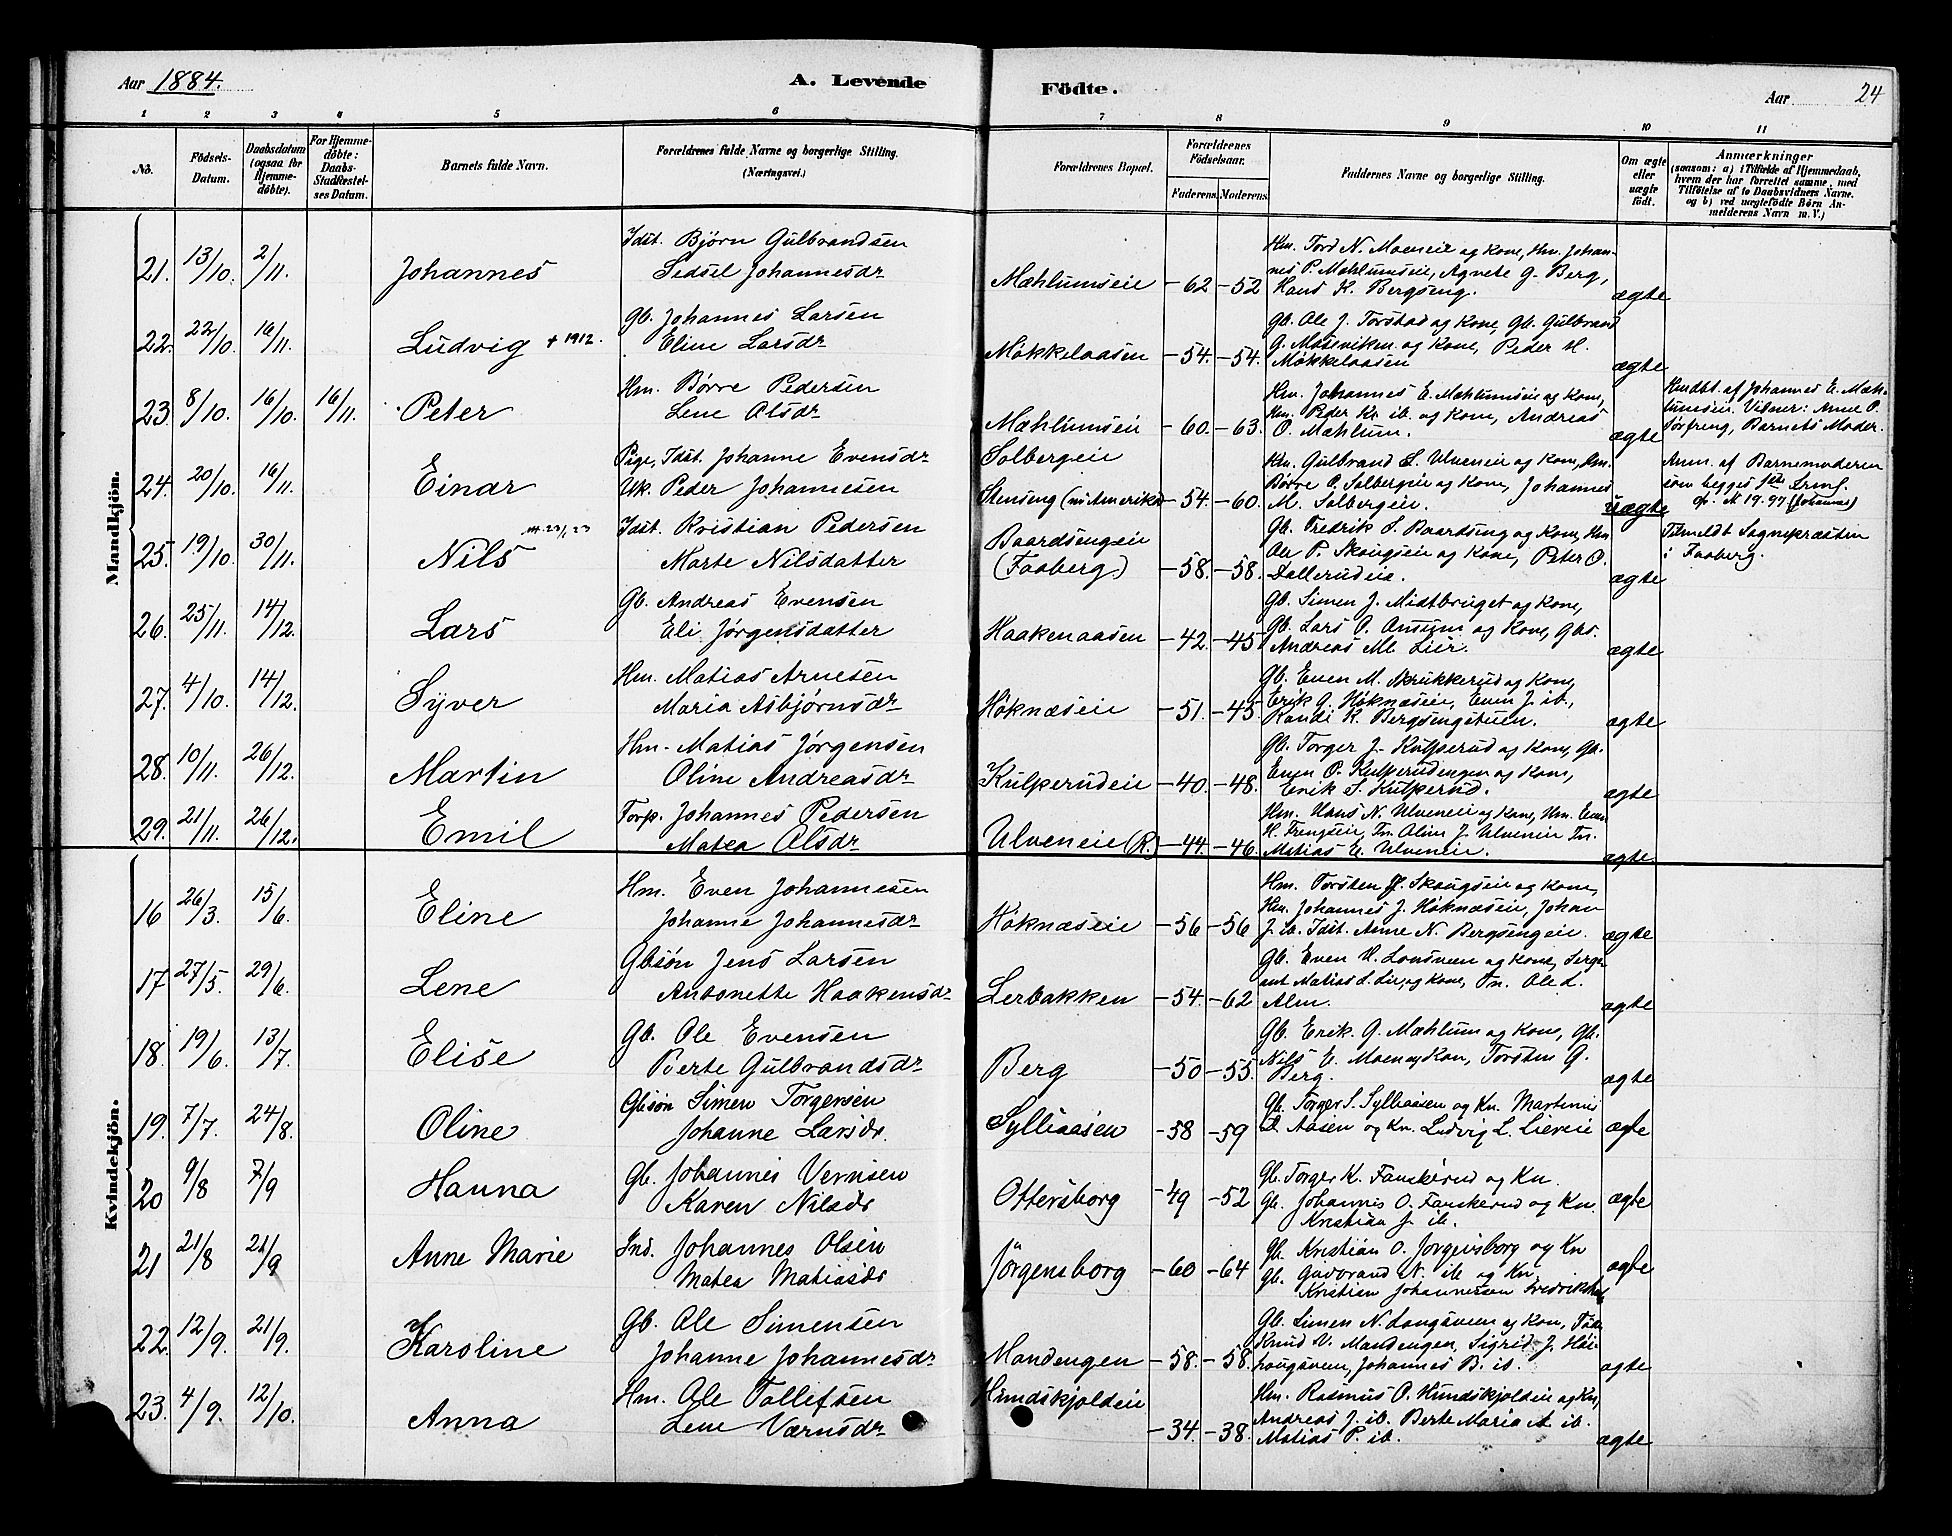 Aar 1884. A. Levende Födte. Aar 24
1 2 3 4 5 6 7 8 9 10 11
No. Födsels-Datum. Daabsdatum (ogsaa for Hjemmedöbte). For Hjemmedöbte: Daabs-Stadfæstelses Datum. Barnets fulde Navn. Forældrenes fulde Navne og borgerlige Stilling. (Næringsvei.) Forældrenes Bopæl. Forældrenes Födselsaar. Faderens. Moderens. Faddernes Navne og borgerlige Stilling. Om ægte eller uægte födt. Anmærkninger (saasom: a) i Tilfælde af Hjemmedaab, hvem der har forrettet samme, med Tilföielse af to Daabsvidners Navne. og b) ved uægtefödte Börn Anmelderens Navn m. V.)
Mandkjön.
21. 13/10. 2/11. Johannes Idst. Bjørn Gulbrandsen
Sidsel Johannesdr Mæhlumseie -62 -52 Hm. Tord N. Moeneie og Kone, Hm. Johan-
nes P. Mæhlumseie, Agnete G. Berg,
Hans K. Bergseng. ægte
22. 22/10. 16/11. Ludvig + 1912. Gb. Johannes Larsen
Eline Larsdr Mokkelaasen -54. -54. Gb. Ole J. Torstad og Kone, Gb. Gulbrand
G. Moseviken og Kone, Peder M.
Mokkelaasen ægte
23. 8/10. 16/10. 16/11. Peter Hm. Børre Pedersen
Lene Olsdr Mæhlumseie -60. -63. Hm. Johannes E. Mæhlumseie og Kone,
Hm. Peder Kr. ib. og Kone, Andreas
O. Mæhlum. ægte Hmdbt. af Johannes E. Mæh-
lumseie. Vidner: Anne P.
Barnets Moder.
24. 20/10. 16/11. Einar Pige, Idst. Johanne Evensdr
Uk. Peder Johannesen Solbergeie
Stenseng (nu i Amerika) -54. -60. Hm. Gulbrand S. Ulveneie og Kone, Hm.
Børre O. Solbergeie og Kone, Johannes
M. Solbergeie. uægte Anm. af Barnemoderen
som begges
25. 19/10. 30/11. Nils Idst. Kristian Pedersen
Marte Nilsdatter Baardsengeie
(Faaberg) -58. -58. Gb. Fredrik S. Baardseng og Kone, Hm
Ole P. Skougseie og Kone, Peter O.
Dallerudeie. ægte Tilmeldt Sognepræsten
i Faaberg.
26. 25/11. 14/12. Lars Gb. Andreas Evensen
Eli Jørgensdatter Haakenaasen -42. -45 Gb. Simen J. Midtbruget og Kone,
Gb. Lars O. og Kone, Gbs.
Andreas M. Lier. ægte
27. 4/10. 14/12. Syver Hm. Matias Arnesen
Maria Asbjørnsdr Høknæseie -51. -45. Gb. Even M. Skrukkerud og Kone,
Erik G. Høknæseie, Even J. ib.,
Randi K. Bergsengstuen. ægte
28. 10/11. 26/12. Martin Hm. Matias Jørgensen
Oline Andreasdr Kulperudeie -40. -48. Gb. Torger J. Kulperud og Kone, Gb.
Even O. Kulperudengen og Kone,
Erik S. Kulperud. ægte
29. 21/11. 26/12. Emil Torp. Johannes Pedersen
Matea Olsdr Ulveneie (R.) -44. -46. Hm. Hans N. Ulveneie og Kone, Hm. Even
H. Frengseie, Tn. Oline J. Ulveneie Tn.
Matias E. Ulveneie. ægte
Kvindekjön.
16 26/3. 15/6. Eline Hm. Even Johannesen
Johanne Johannesdr Høknæseie -56 -56 Hm. Torsten P. Skougseie og Kone,
Hm. Johannes J. Høknæseie, Johan
J. ib. Idst. Anne N. Bergsengeie. ægte
17 27/5. 29/6. Lene Gbsøn Jens Larsen
Antonette Haakensdr Lerbakken -54. -62 Gb. Even H. Lonsveen og Kone, Serge-
ant Matias S. Lie, og Kone, Tn. Ole L.
Alm. ægte
18. 19/6. 13/7. Elise Gb. Ole Evensen
Berte Gulbrandsdr Berg -50 -55. Gb. Erik G. Mæhlum og Kone, Gb.
Nils E. Moen og Kone, Torsten G.
Berg. ægte
19. 7/7. 24/8. Oline Gbsøn Simen Torgersen
Johanne Larsdr. Sylliaasen -58 -59 Gb. Torger S. Sylliaasen og Kn. Martinus
L. Aasen og Kn. Ludvig L. Liereie ægte
20 9/8 7/9 Hanna Gb. Johannes Vernsen
Karen Nilsdr Ottersborg -49 -52 Gb. Torger K. Fanskerud og Kn.
Gb. Johannes O. Fanskerud og Kn.
Kristian J. ib. ægte
21 21/8 21/9 Anne Marie Ind. Johannes Olsen
Matea Matiasdr Jørgensborg -60 -64 Gb. Kristian O. Jørgensborg og Kn
Gb. Gudbrand N. ib og Kn.
Kristian Johannessen ægte
22. 12/9. 21/9. Karoline Gb. Ole Simensen
Johanne Johannesdr Mandengen -58. -58. Gb. Simen N. Langsveen og Kone,
Knud V. Mandengen, Sigrid J. Høi-
haugsveen, Johannes B. ib. ægte
23. 4/9. 12/10. Anna Hm. Ole Tollefsen
Lene Værnsdr Hundskjoldeie -34. -38. Hm. Rasmus O. Hundskjoldeie og Kn,
Andreas J. ib. Berte Maria A. ib.
Matias P. ib. ægte